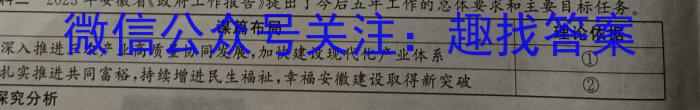 料二 2023年安徽省《政府工作报告》提出了今后五年工作的总体要求和主要目标任务。
谋篇布局 理论依据
微信公众号关注:趣找答案
深入推进 产业高质量协同发展,加快建设现代化产业体系 ①
扎实推进共同富裕,持续增进民生福祉,幸福安徽建设取得新突破 ②
探究分析